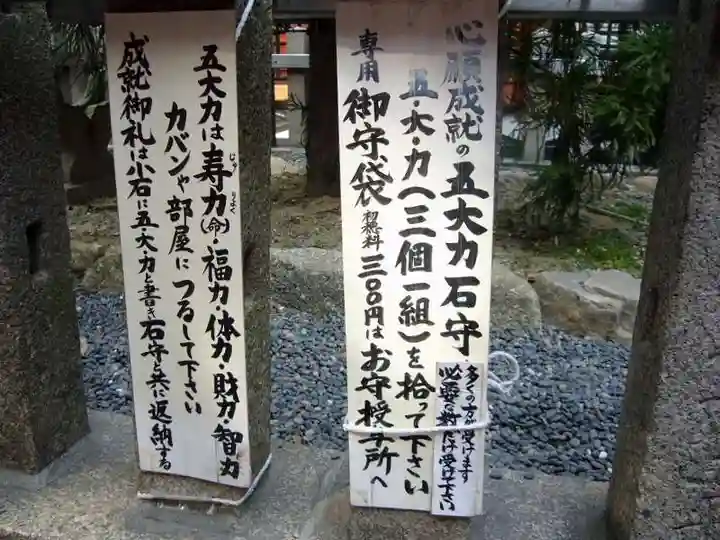 心願成就の五大力石守
五・大・力(三個一組)を拾って下さい
専用御守袋 初穂料三〇〇円はお守授与所へ
多くの方が受けます
必要な数だけ受けて下さい
五大力は寿力(命)・福力・体力・財力・智力
じゅ りょく
カバンや部屋につるして下さい
成就御礼は小石に五・大・力と書き石守と共に返納する